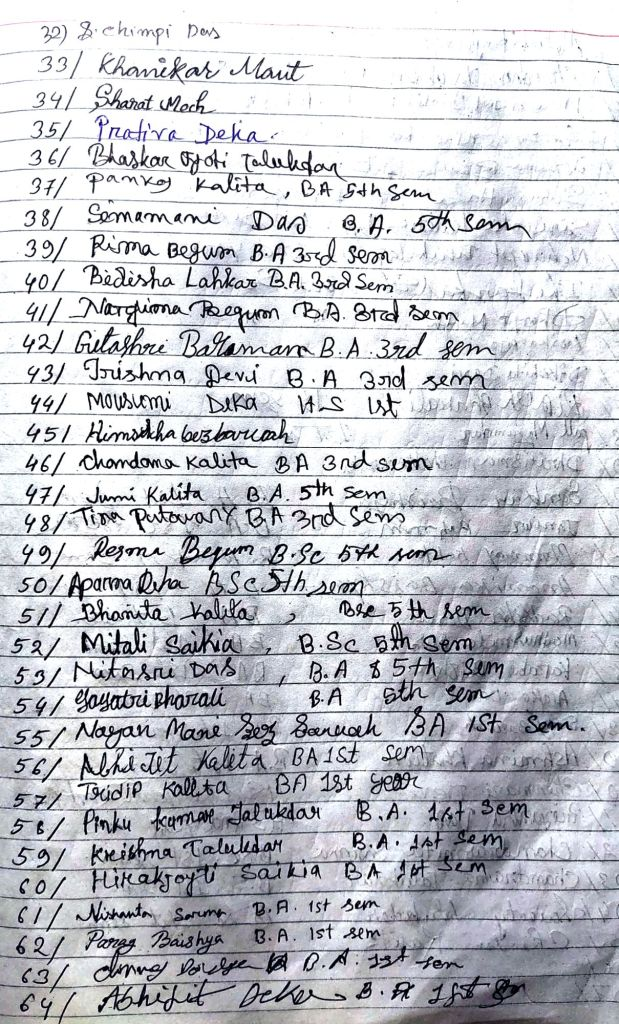 32) S. chimpi Das
33/ Khanikar Maut
34/ Sharat Mech
35/ Prativa Deka.
36/ Bhaskar Jyoti Talukdar
37/ Pankaj Kalita, BA 5th Sem
38/ Semamani Das B.A. 5th Sem
39/ Risma Begum B.A 3rd Sem
40/ Bedisha Lahkar B.A. 3rd Sem
41/ Begum B.A. 3rd Sem
42/ Gitashri B.A. 3rd Sem
43/ Trishna Devi B.A 3rd sem
44/ Mousumi Deka H S 1st
45/ bezbaruah
46/ Chandana Kalita BA 3rd sem
47/ Jumi Kalita B.A. 5th Sem
48/ B.A 3rd Sem
49/ Resma Begum B.Sc 5th sem
50/ Aparna BSc 5th sem
51/ Bhanita Kalita, Bsc 5th sem
52/ Mitali Saikia, B.Sc 5th Sem
53/ Nitasri Das, B.A 5th Sem
54/ Gayatri Bharali B.A 5th Sem
55/ Nayan Mani Bez Baruah BA 1St Sem.
56/ Abhijet Kalita BA 1St Sem
57/ Tridip Kalita BA 1st year
58/ Pinku kumar Talukdar B.A. 1st Sem
59/ Krishna Talukdar B.A. 1st Sem
60/ Hirakjoyti Saikia BA 1st Sem
61/ Nishanta Sarma B.A. 1st sem
62/ Parag Baishya B.A. 1st sem
63/ B.A. 1st sem
64/ Abhijit Deka B.A 1st